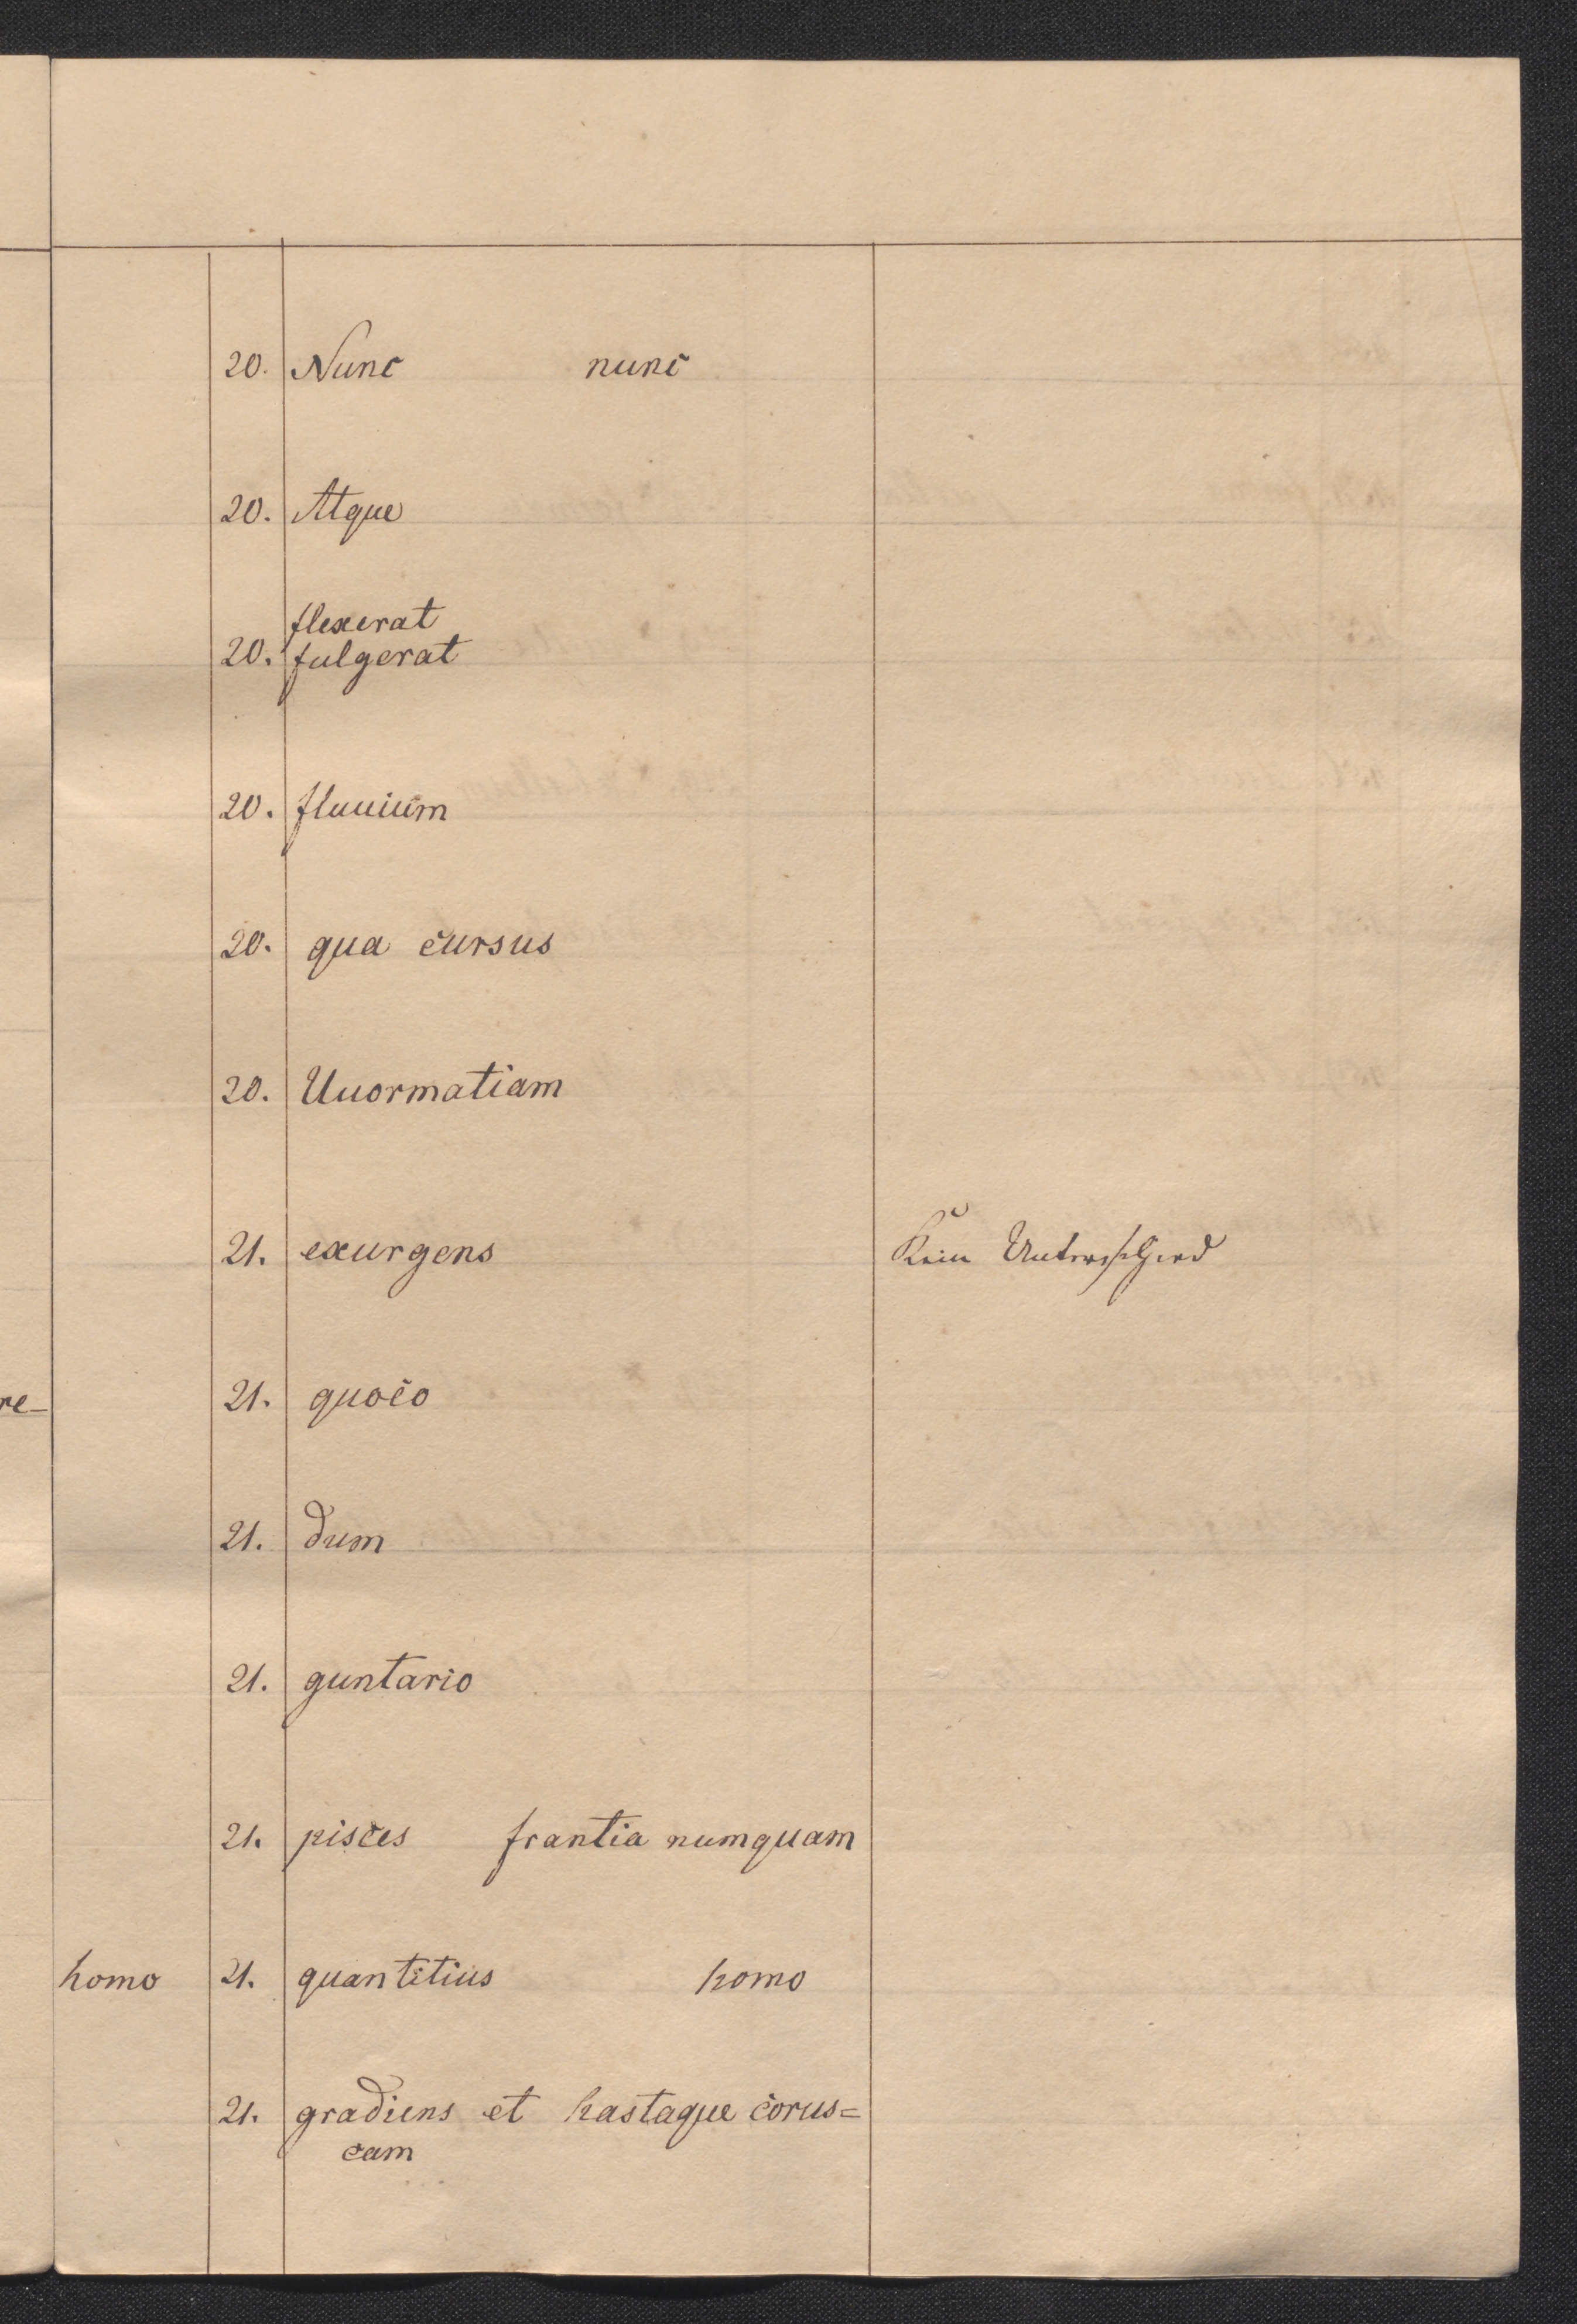 20. Nunc nunc
20. Atque
flexerat
20. fulgerat
20. fluuium
20. qua cursus
20. Uuormatiam
21. exurgens Kein Unterschied
re-
21. quoco
21. dum
21. guntario
21. pisces frantia numquam
homo 21. quantitius homo
21. gradiens et hastaque corus=
cam